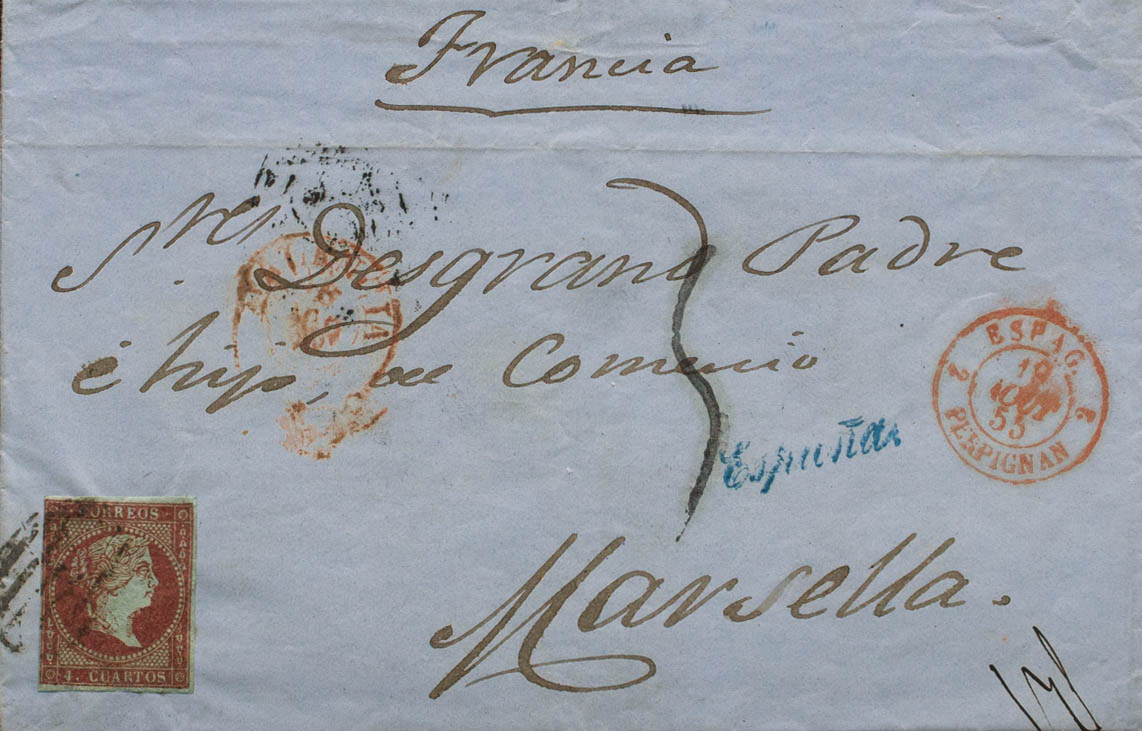 Francia
Sres Desgrand Padre
é hijo, del Comercio
3
España.
ESPAG.
2 19 2
AOUT
55
PERPIGNAN
Marsella.
CORREOS
4. CUARTOS